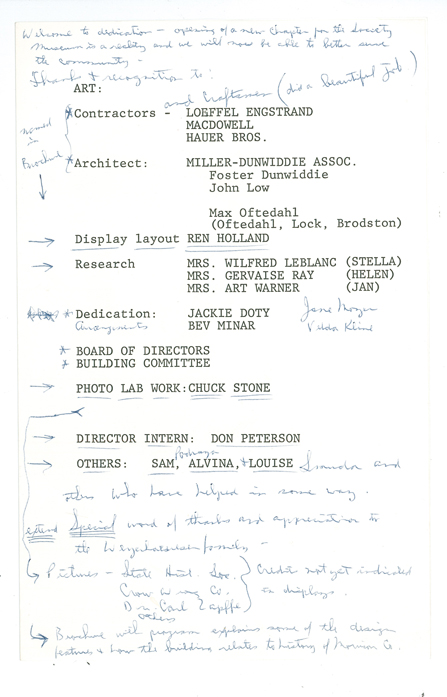 Welcome to dedication - opening of a new chapter for the Society
Museum is a reality and we will now be able to better serve
the community -
Thanks & recognition to:
ART:
and Craftsmen (did a beautiful job)
*Contractors - LOEFFEL ENGSTRAND
MACDOWELL
HAUER BROS.
named in Brochure
*Architect: MILLER-DUNWIDDIE ASSOC.
Foster Dunwiddie
John Low
Max Oftedahl
(Oftedahl, Lock, Brodston)
→ Display layout REN HOLLAND
→ Research MRS. WILFRED LEBLANC (STELLA)
MRS. GERVAISE RAY (HELEN)
MRS. ART WARNER (JAN)
* Dedication: JACKIE DOTY Jane
Arrangements BEV MINAR Velda
* BOARD OF DIRECTORS
* BUILDING COMMITTEE
→ PHOTO LAB WORK: CHUCK STONE
→ DIRECTOR INTERN: DON PETERSON
→ OTHERS: SAM, ALVINA, + LOUISE and
others who have helped in some way.
extend Special word of thanks and appreciation to
the Weyerhaeuser family -
Pictures - State Hist. Soc.
Crow Wing Co.
Dr. Carl Zapffe
others
Credits not yet indicated
on displays.
Brochure will program explains some of the design
features & how the building relates to history of Morrison Co.